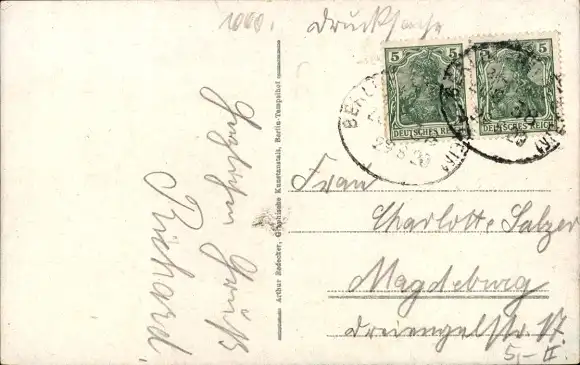 1000.
Drucksache
5
5
DEUTSCHES REICH
DEUTSCHES REICH
BERLIN
Herzlichen Gruß
Richard.
Arthur Redecker, Graphische Kunstanstalt, Berlin-Tempelhof
Frau
Charlotte Salzer
Magdeburg
Dreiengelstr. 17.
5,- II.